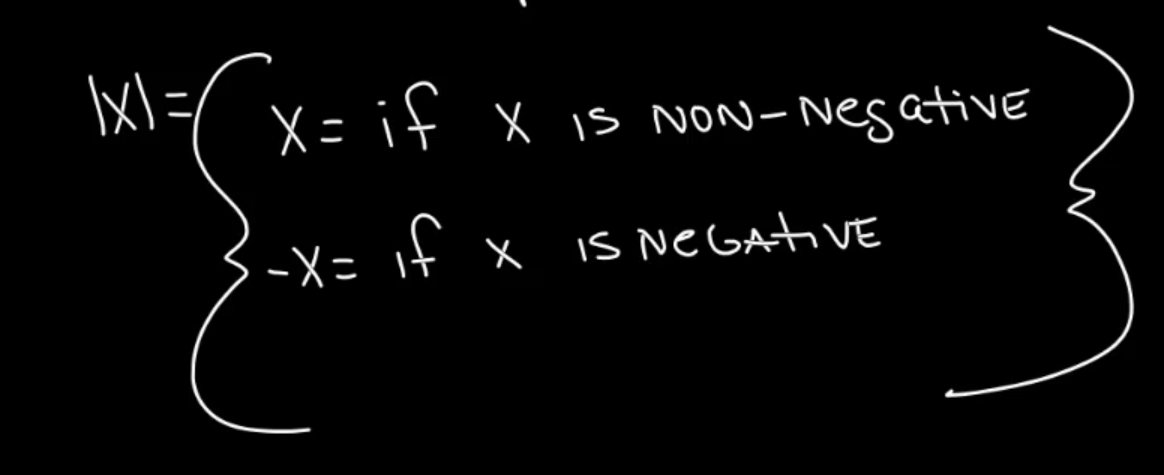 |x|= { x= if x is NON-Negative }
-x= if x is NEGAtiVE